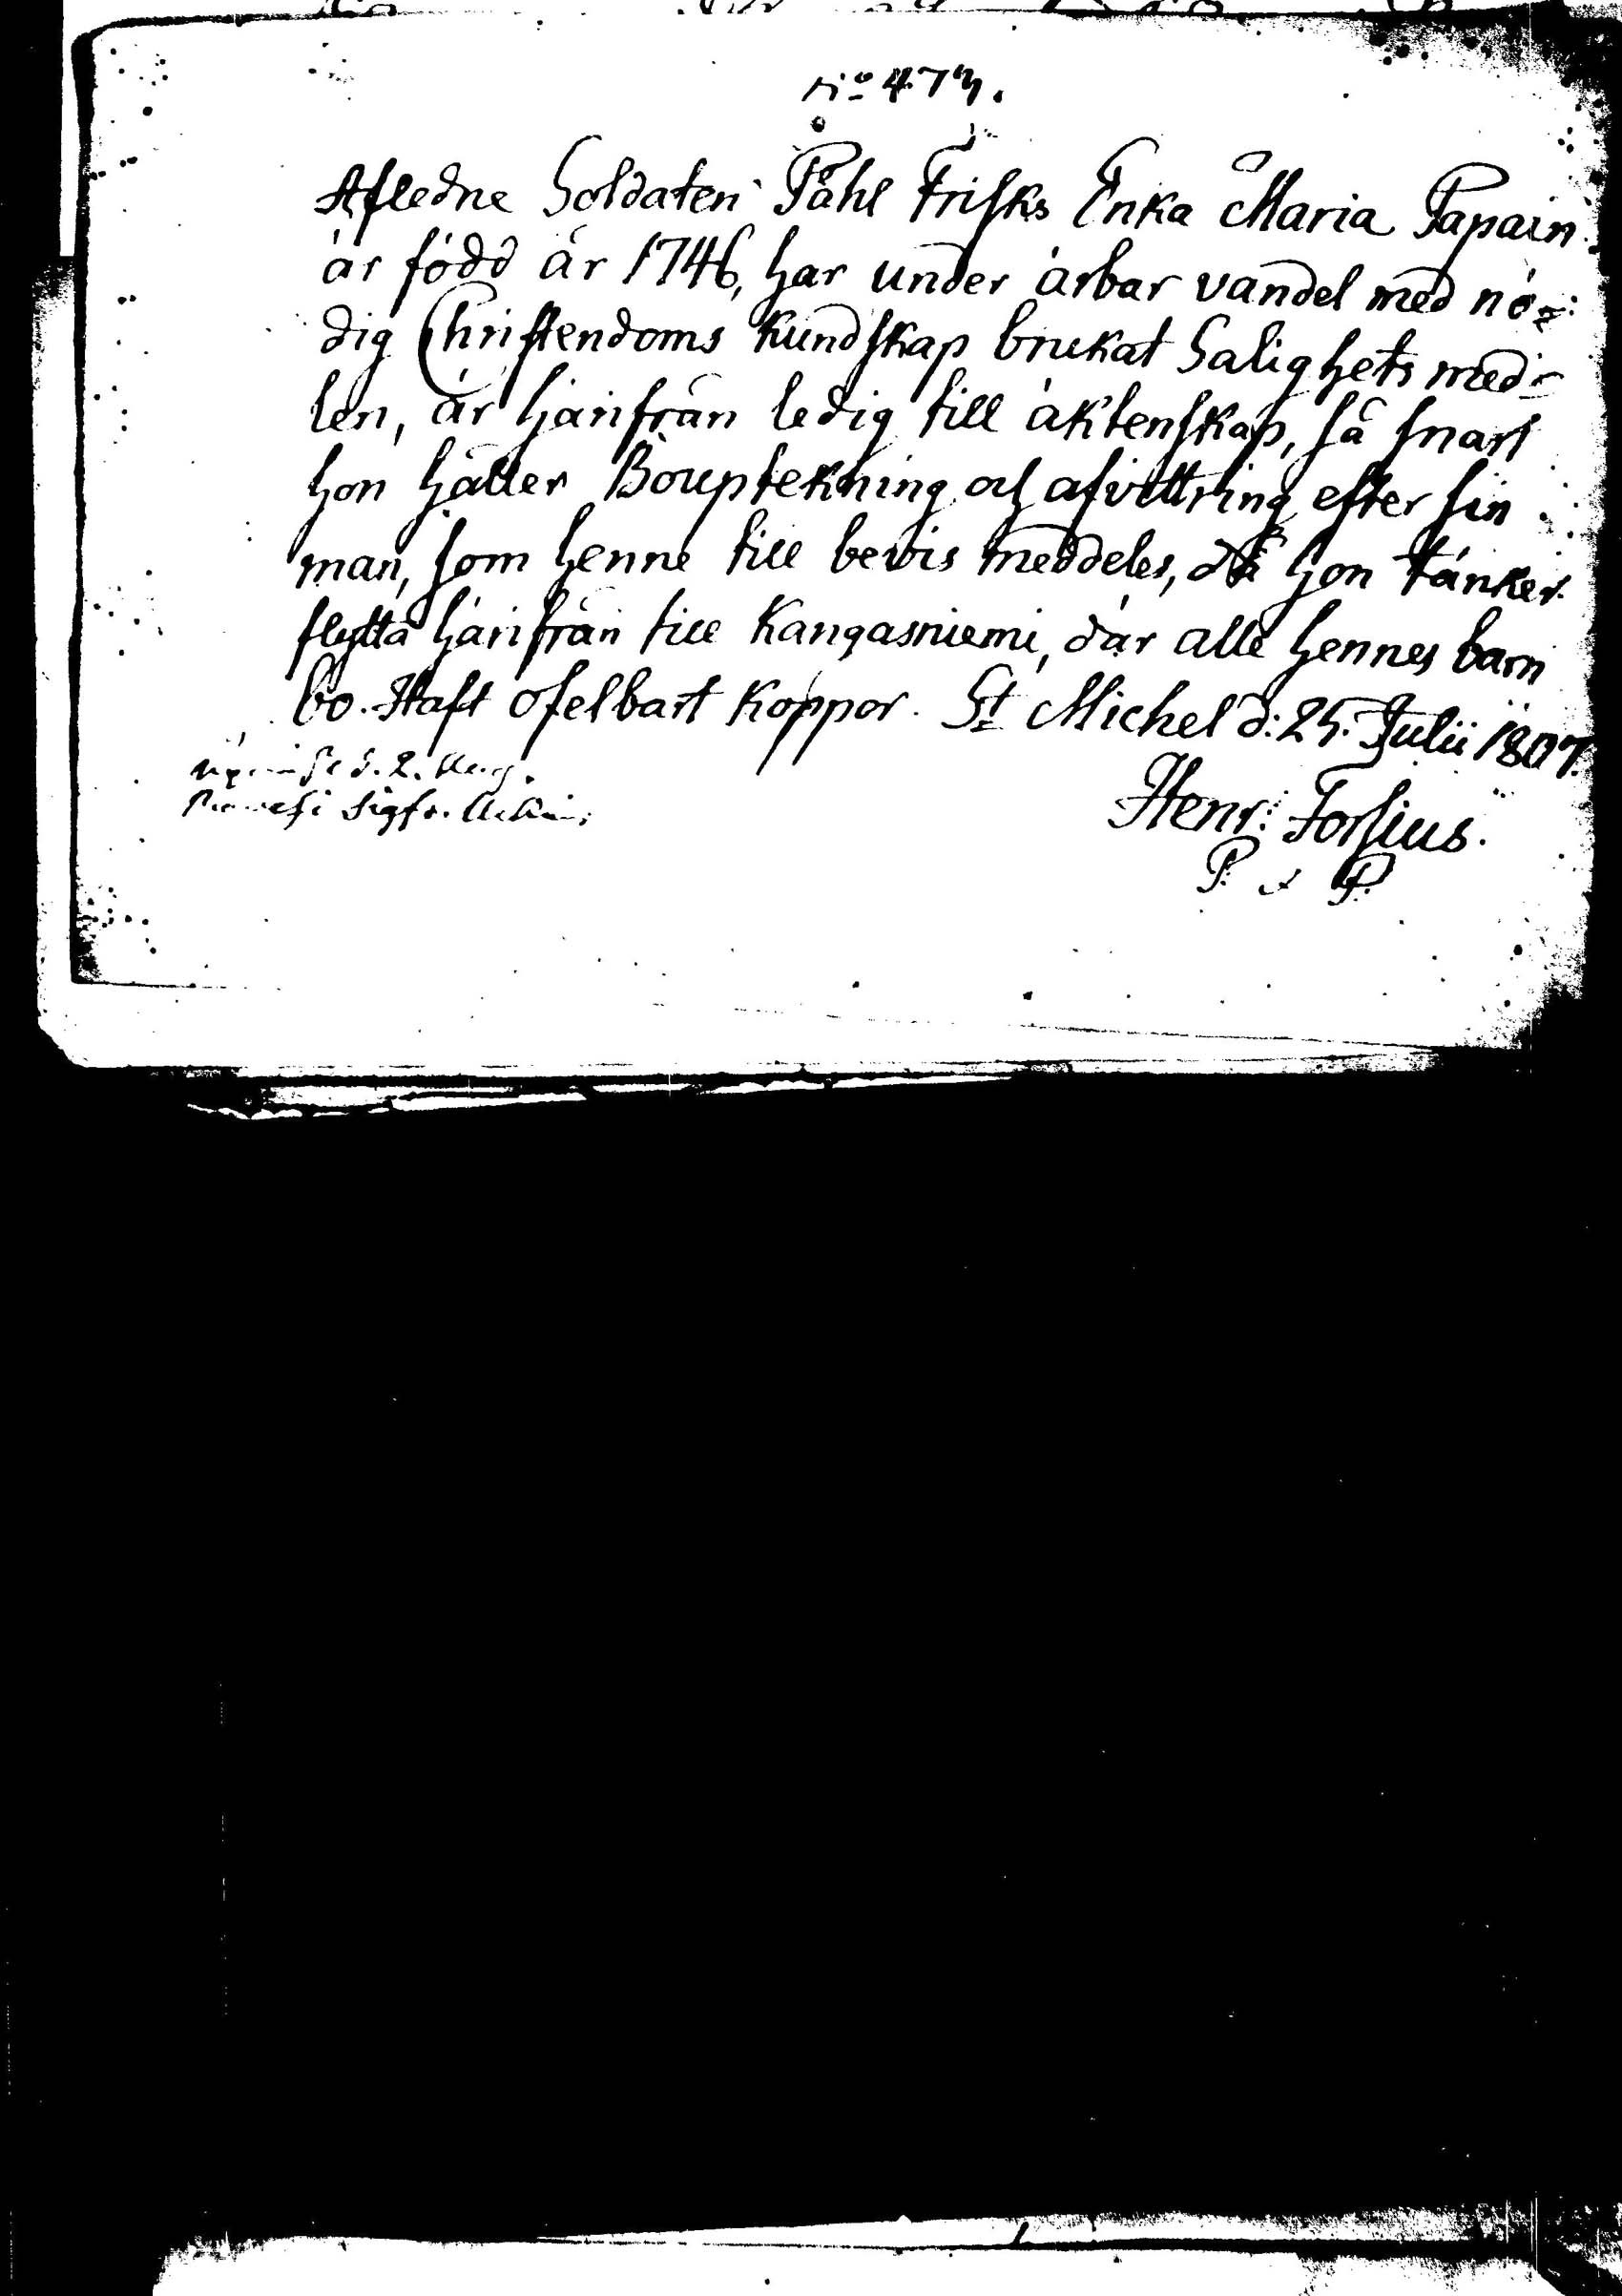 No 473.
Afledne Soldaten Påhl Frisks Enka Maria Papain
är född år 1746, har under ärbar vandel med nö=
dig Christendoms kundskap brukat Salighets med=
len, är härifrån ledig till äktenskap, så snart
hon håller Bouptekning och afvittring efter sin
man, som henne till bevis meddeles, då hon tänker
flytta härifrån till Kangasniemi, där alle hennes barn
bo. Haft ofelbart Koppor. St Michel d: 25. Julii 1807.
d. 2. Aug.
Sigfr.
Henr: Forsius.
P. P.